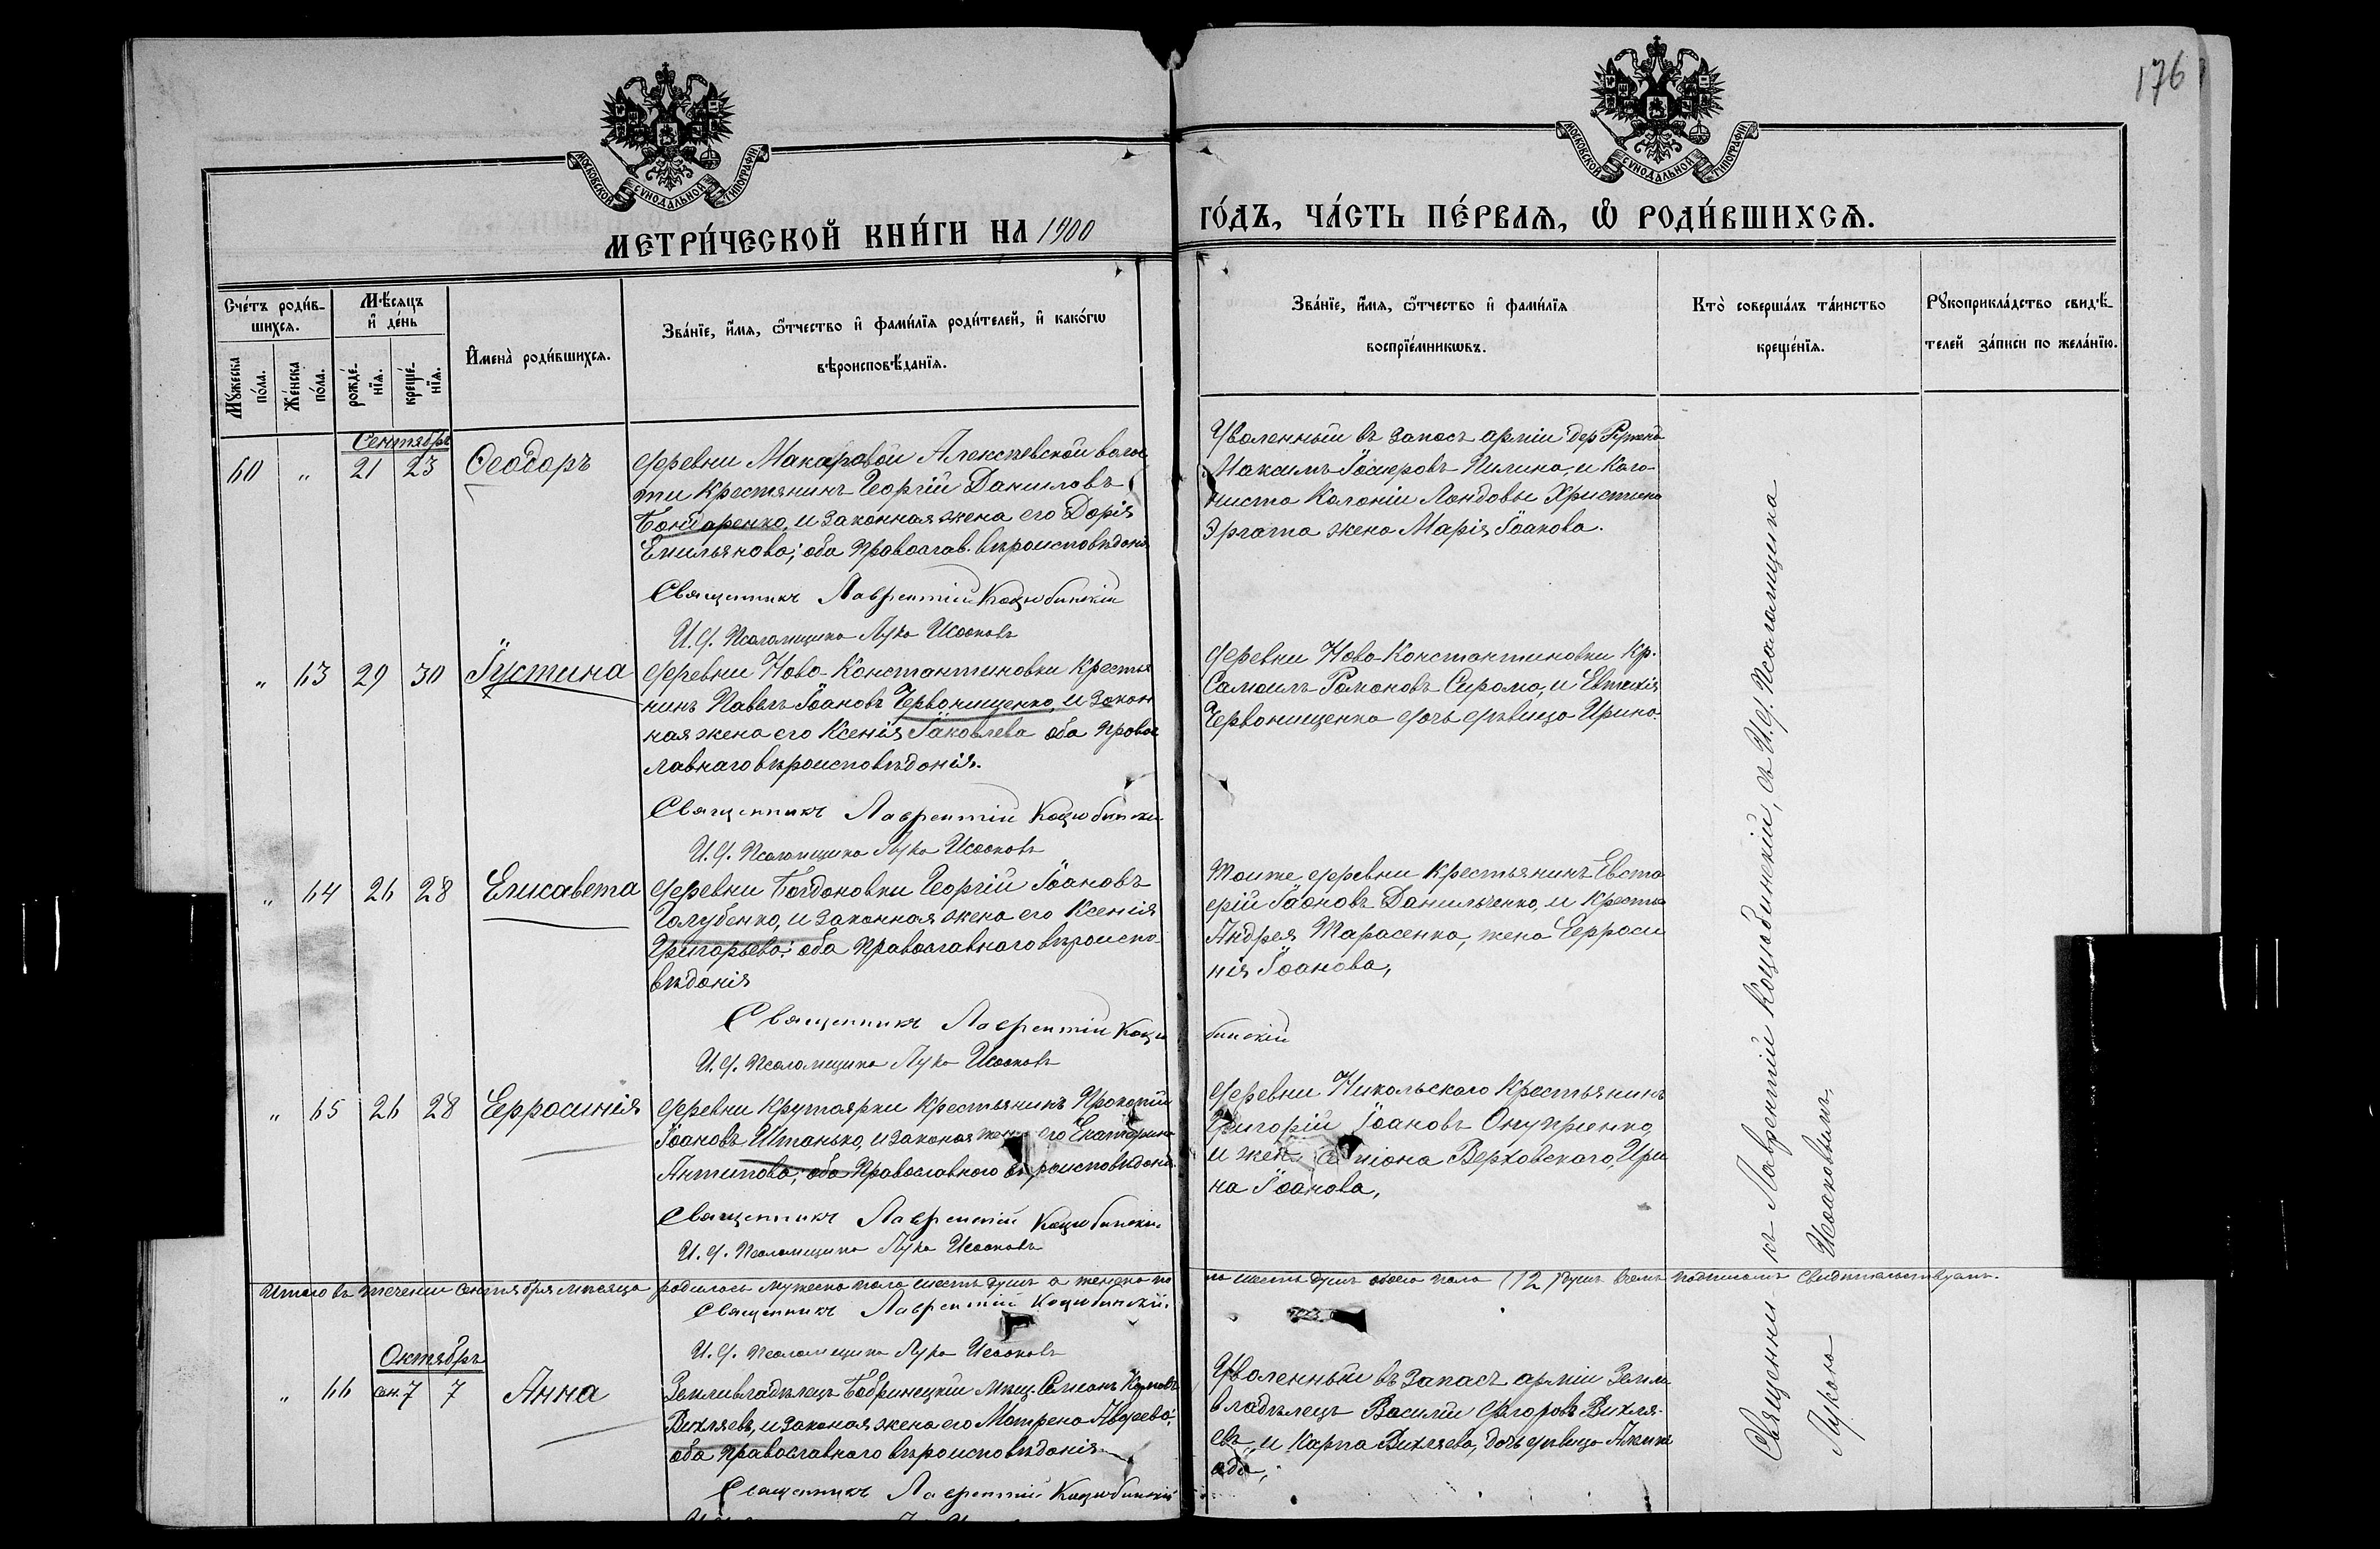 176
МОСКОВСКОЙ СѴНОДАЛЬНОЙ ТИПОГРАФІИ
МОСКОВСКОЙ СѴНОДАЛЬНОЙ ТИПОГРАФІИ
МЕТРИ́ЧЕСКОЙ КНИ́ГИ НА 1900 ГО́ДЪ, ЧА́СТЬ ПЕ́РВАѦ, Ѡ҆ РОДИ́ВШИХСѦ.
Сче́тъ роди́в-
шихсѧ.
Мꙋ́жеска
по́ла.
Же́нска
по́ла.
Мѣ́сѧцъ
и҆ де́нь
рожде́-
нїѧ.
креще́-
нїѧ.
И҆мена̀ роди́вшихсѧ.
Зва́нїе, и҆́мѧ, ѻ҆́тчество и҆ фами́лїѧ роди́телей, и҆ како́гѡ
вѣроисповѣ́данїѧ.
Зва́нїе, и҆́мѧ, ѻ҆́тчество и҆ фами́лїѧ
воспрїе́мникѡвъ.
Кто̀ соверша́лъ та́инство
креще́нїѧ.
Рꙋкоприкла́дство свидѣ́-
телей за́писи по жела́нїю.
Сентябрь
60 „ 21 23 Ѳеодоръ
деревни Макаровой Алексѣевской волос
ти крестьянинъ Георгій Даниловъ
Бондаренко, и законная жена его Дарія
Емильянова; оба православ. вѣроисповѣданія
Священникъ Лаврентій Коцюбинскій
И. д. Псаломщика Лука Исааковъ
Уволенный въ запасъ арміи дер
Максимъ Пилипа, и коло-
ниста колоніи Ландовы Христіана
жена Марія Іоакова.
„ 63 29 30 Іустина
деревни Ново-Константиновки крестья
нинъ Павелъ Іоановъ Червонищенко, и закон
ная жена его Ксенія Іаковлева оба правос
лавнаго вѣроисповѣданія.
Священникъ Лаврентій Коцюбински
И. д. Псаломщика Лука Исааковъ
деревни Ново-Константиновки Кр.
Самоилъ Романовъ Сирома, и Евтихія
Червонищенка дочь дѣвица Ирина.
„ 64 26 28 Елисавета
деревни Богдановки Георгій Іоановъ
Голубенко, и законная жена его Ксенія
Григорьева: оба православнаго вѣроиспо-
вѣданія
Священникъ Лаврентій Коцю бинскій
И. д. Псаломщика Лука Исааковъ
тоиже деревни крестьянинъ Евста
ерій Іоановъ Данильченко, и крестья
Андрея Тарасенка, жена Ефроси
нія Іоанова,
„ 65 26 28 Ефросинія
деревни Крутоярки крестьянинъ Прокопій
Іоановъ Штанько, и законая жена его Екатерина
Антипова; оба православнаго вѣроисповѣданія
Священникъ Лаврентій Коцюбински
И. д. Псаломщика Лука Исааковъ
деревни Никольскаго крестьянинъ
Григорій Іоановъ Онупріенко,
и жена Верховскаго, Ири
на Іоанова,
Итого въ теченіи сентября мѣсяца родилось мужеска пола шесть душъ а женска по ла шесть душъ обоего пола (12) душъ въ чемъ подписомъ свидѣтельствуемъ.
Священникъ Лаврентій Коцюбинскій.
И. д. Псаломщика Лука Исааковъ
Октябрь
„ 66 сен. 7 7 Анна
Земливладѣлецъ Бобринецкій мѣщ. Семіонъ Карповъ
Вихляевъ, и законая жена его Матрена Авдеева;
оба православнаго вѣроисповѣданія
Священникъ Лаврентій Коцюбинскій
Уволенный въ запасъ арміи земли
владѣлецъ Василій Федоровъ Вихля-
евъ, и Карпа Вихляева, дочь дѣвица
Священникъ Лаврентій Коцюбинскій, съ И. д. Псаломщика
Лукою Исааковымъ,